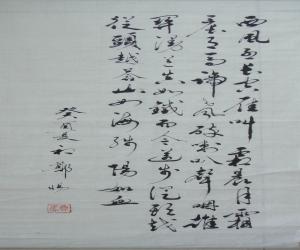 西风烈长空雁叫霜晨月霜
晨月马蹄声碎喇叭聲咽雄
關漫道真如铁而今迈步從頭越
從頭越苍山如海残陽如血
癸酉夏初鄭